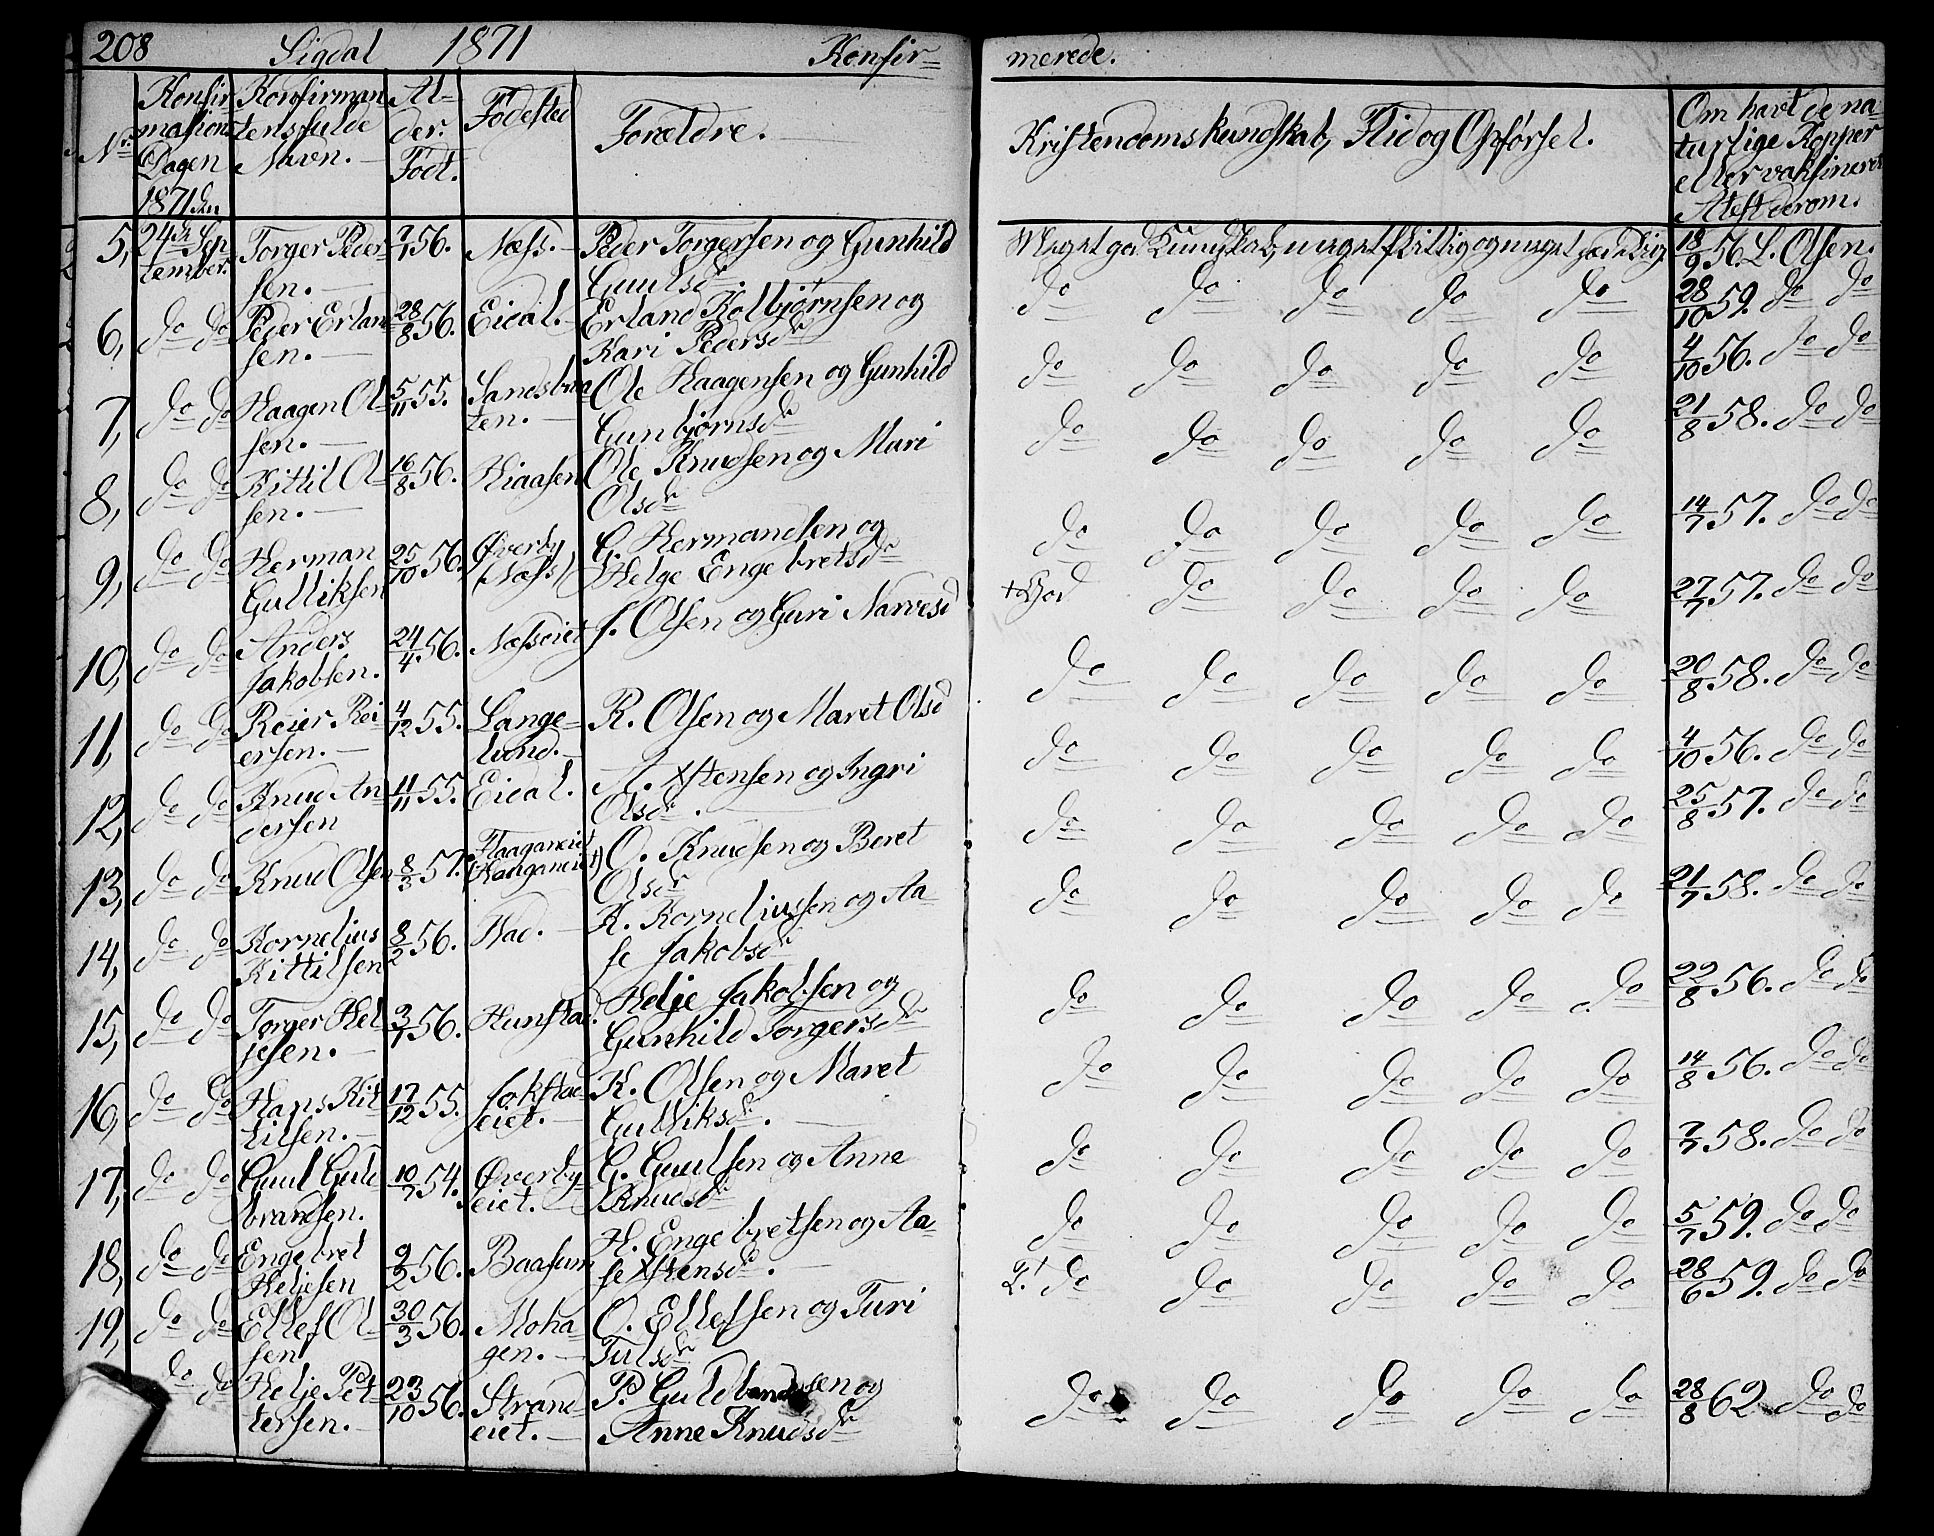 208 Sigdal 1871 Konfir= merede.
Nr. Konfirmasions Dagen 1871 den
Konfirmantens fulde Navn.
Alder. Født.
Fødested
Foreldre.
Kristendomskundskab, Flid og Opførsel.
Om havt de naturlige Kopper eller vaksineret Atest derom.
5, 24de September. Torger Pedersen. 7/7 56. Næss. Peder Torgersen og Gunhild Guulsdr. Meget god Kundskab, meget flittig og meget sædelig 18/9 56. L. Olsen.
6, do do Peder Erlansen. 28/8 56. Eidal. Erland Kolbjørnsen og Kari Pedersdr do do do do do 28/10 59. do do
7, do do Haagen Olsen. 5/11 55. Sandsbraaten. Ole Haagensen og Gunhild Gunbjørnsdr do do do do do 4/10 56. do do
8, do do Kittil Olsen. 16/8 56. Kiaasen Ole Knudsen og Mari Olsdr do do do do do 21/8 58. do do
9, do do Herman Gulliksen 25/10 56. Øverby (Næss) G. Hermandsen og Helge Engebretsdr do do do do do 14/7 57. do do
10, do do Anders Jakobsen. 24/4 56. Næsseiet J. Olsen og Guri Narvesd + God do do do do 27/7 57. do do
11, do do Reier Reiersen. 4/12 55. Langelund. R. Olsen og Maret Olsd do do do do do 20/8 58. do do
12, do do Knud Andersen 11/11 55. Eidal. A. Xstensen og Ingri Olsdr. do do do do do 4/10 56. do do
13, do do Knud Olsen 8/3 57. Flaaganeiet (Haaganeiet) O. Knudsen og Beret Olsdr do do do do do 25/8 57. do do
14, do do Kornelius Kittilsen 8/2 56. Kad. K. Korneliussen og Aase Jakobsdr do do do do do 21/7 58. do do
15, do do Torger Heljesen. 3/7 56. Hunstad. Helje Jakobsen og Gunhild Torgersdr do do do do do 22/8 56. do do
16, do do Hans Kittilsen. 17/12 55. Jokstadeiet. K. Olsen og Maret Gulliksdr. do do do do do 14/8 56. do do
17, do do Guul Gulbransen. 10/7 54. Øverbyeiet. G. Guulsen og Anne Knudsdr do do do do do 7/7 58. do do
18, do do Engebret Heljesen 9/2 56. Baasum H. Engebretsen og Aase Xstensdr. do do do do do 5/7 59. do do
19, do do Ellef Olsen 30/3 56. Mohagen. O. Ellefsen og Turi Tulsdr do do do do do 28/6 59. do do
do do Helje Pettersen. 23/10 56. Strandeiet. P. Guldbrandsen og Anne Knudsdr do do do do do 28/8 62. do do